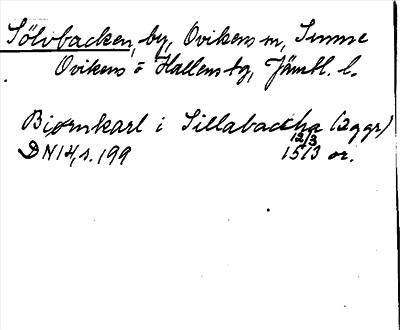 Sölvbacken, by, Ovikens sn, Sunne
Ovikens o Hallens tg, Jämtl. l.
Biørnkarl i Sillabacka (2 ggr)
12/3
DN 14, s. 199 1513 or.